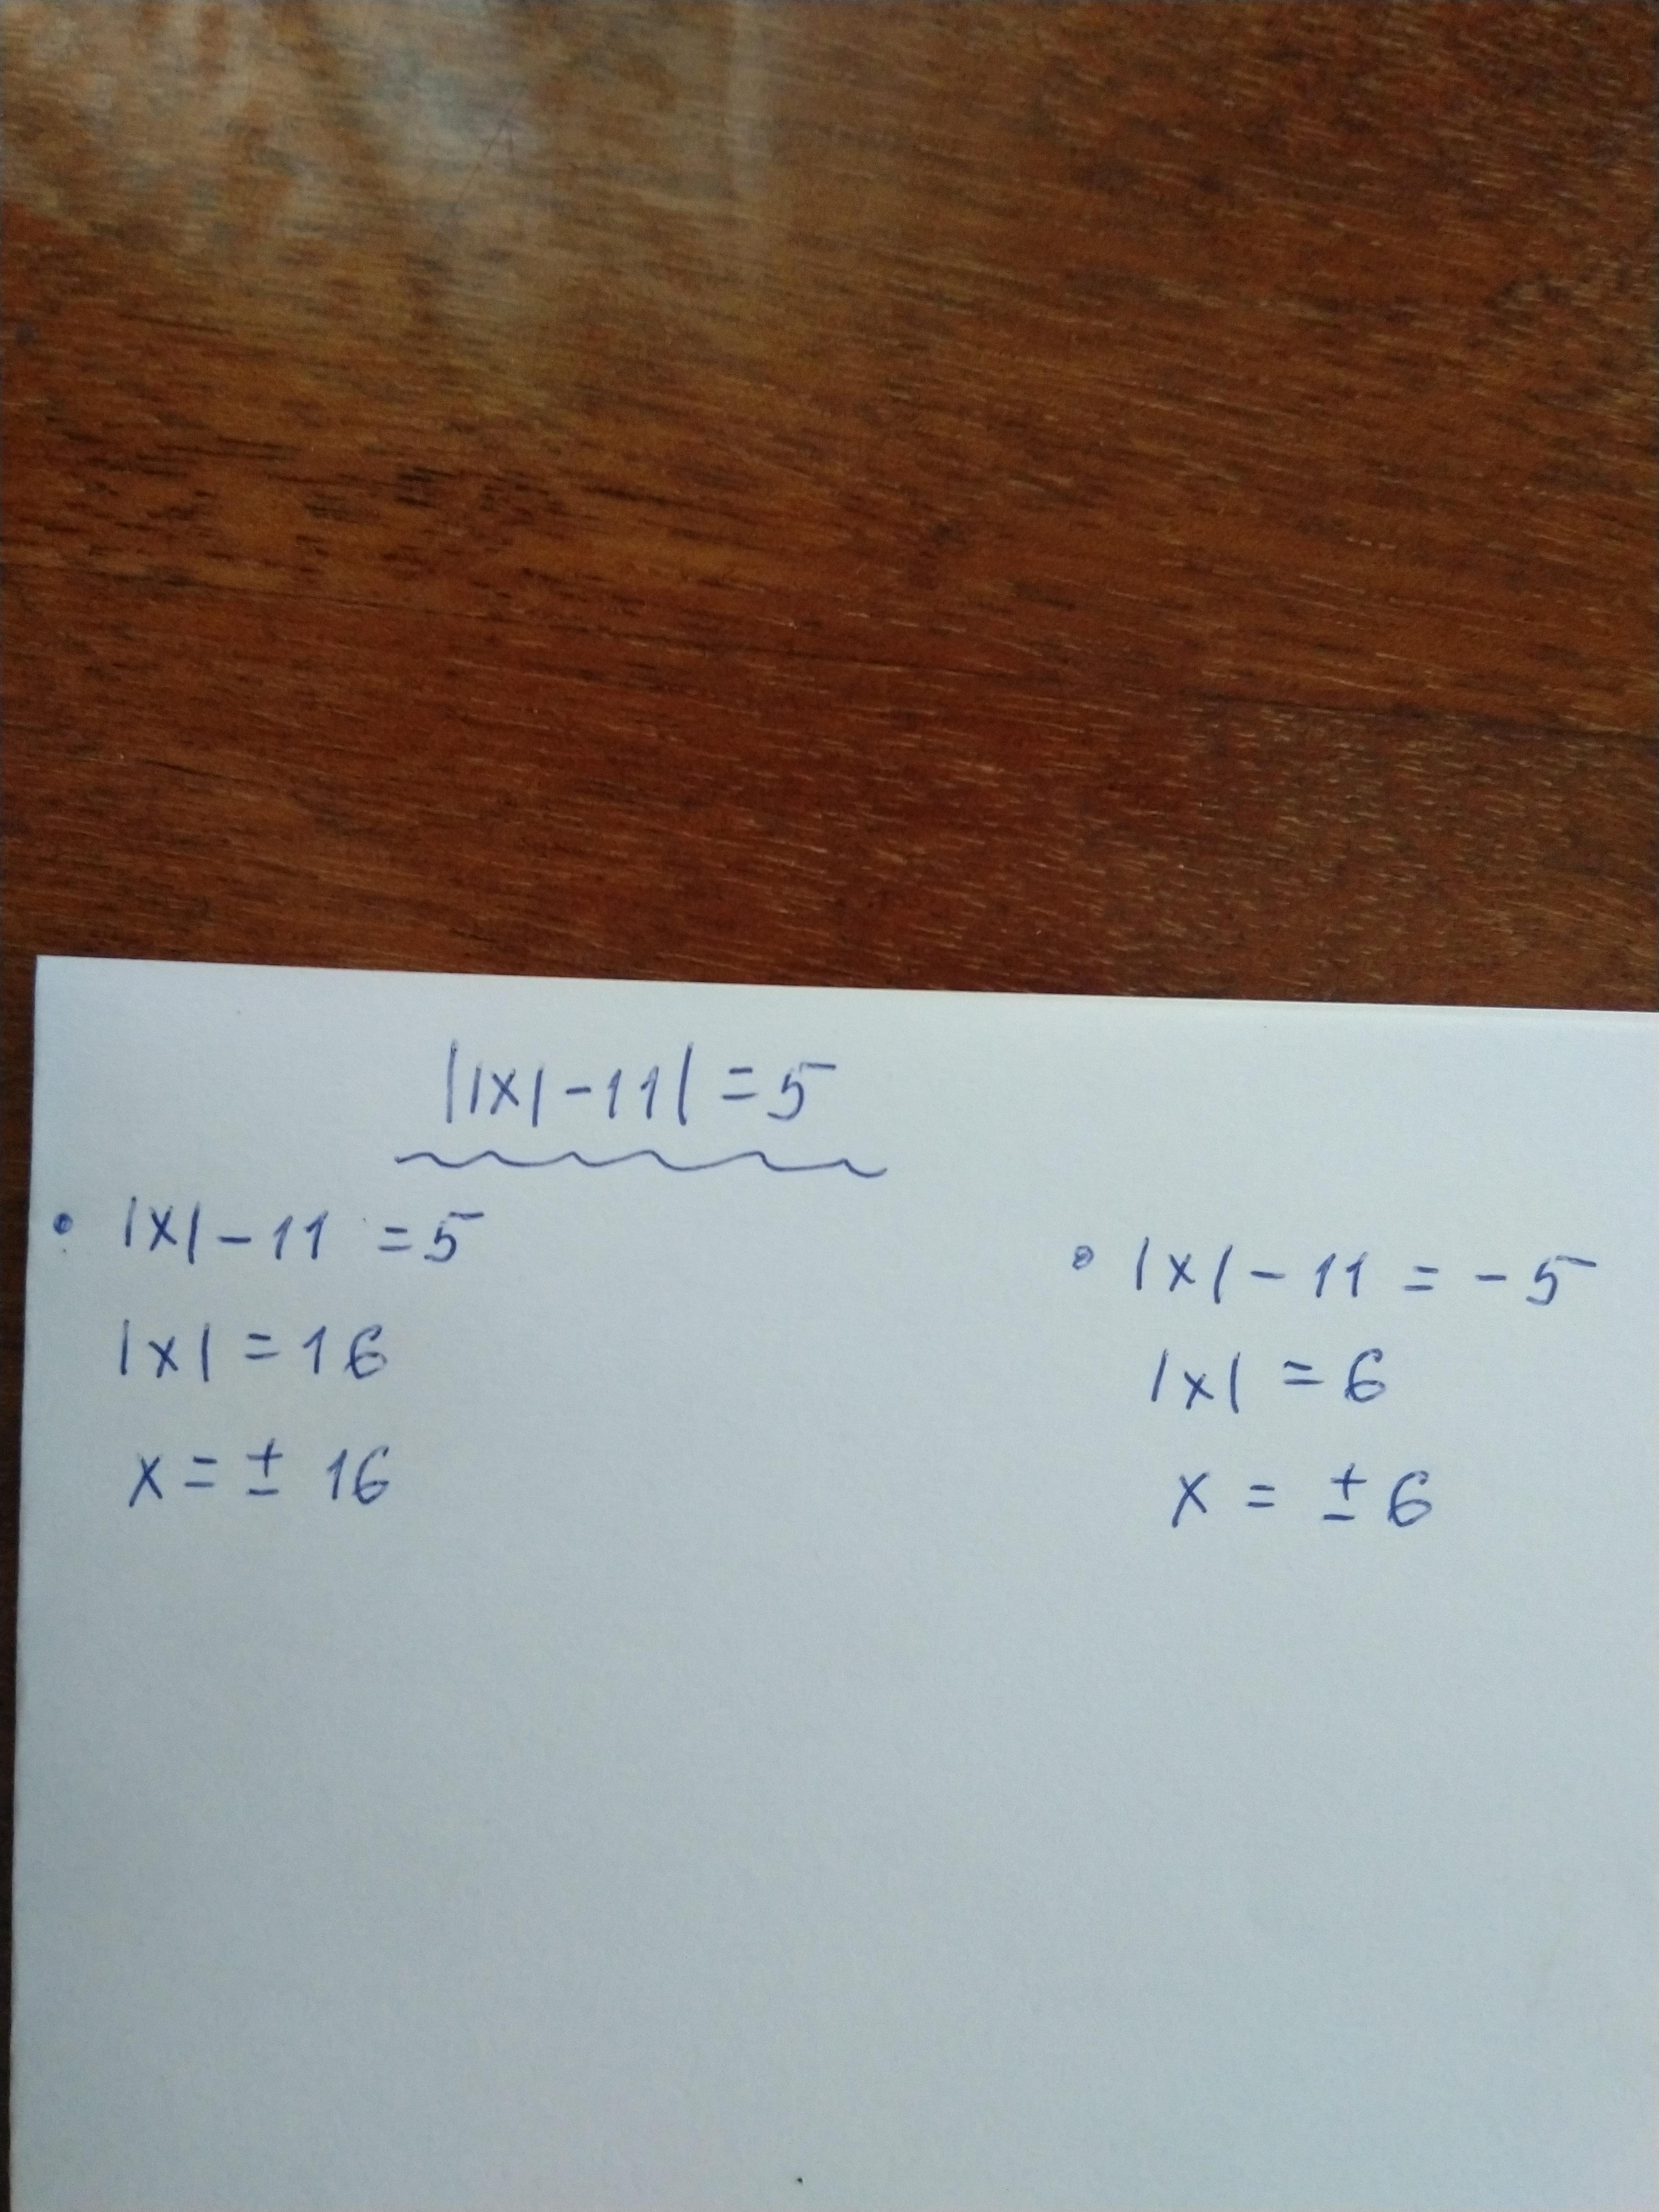 ||x|-11| = 5
• |x|-11 = 5
|x| = 16
x = ± 16
• |x|-11 = -5
|x| = 6
x = ± 6